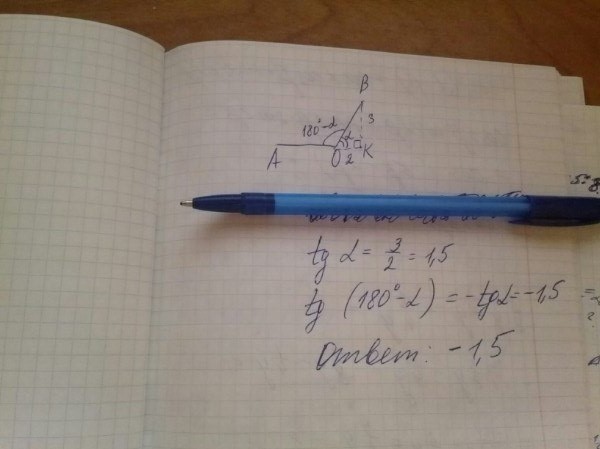 B
180°-α α 3
A O 2 K
tg α = 3/2 = 1,5
tg (180°-α) = -tgα = -1,5
Ответ: -1,5